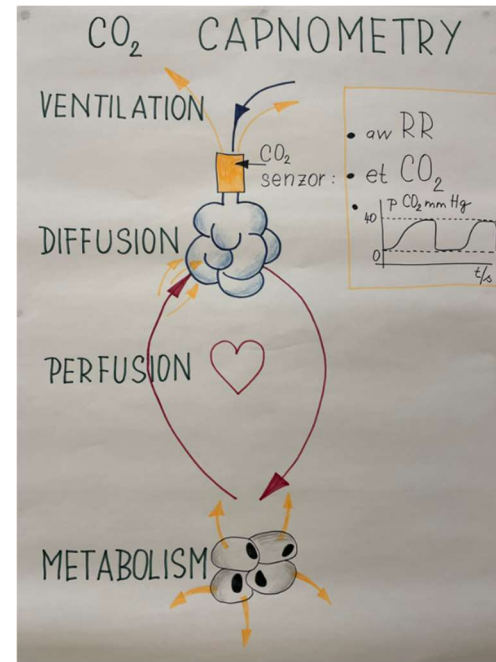 CO₂ CAPNOMETRY
VENTILATION
CO₂
senzor:
• aw RR
• et CO₂
• p CO₂ mm Hg
40
0
t/s
DIFFUSION
PERFUSION
METABOLISM